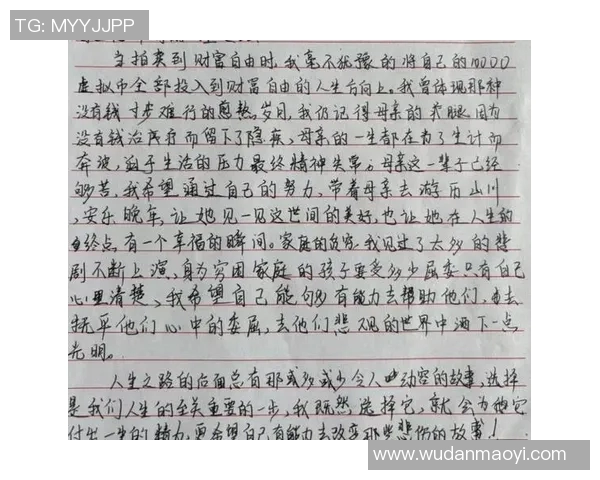 TG: MYYJJPP
当拍卖到财富自由时,我毫不犹豫的将自己的10000
虚拟币全部投入到财富自由的人生方向上。我曾体现那种
没有钱寸步难行的煎熬岁月,我仍记得母亲的 腿因为
没有钱治疗而留下了隐疾、母亲的一生都在为了生计而
奔波,迫于生活的压力最终精神失常。母亲这一辈子已经
够苦,我希望通过自己的努力,带着母亲去游历山川
,安乐晚年,让她见一见这世间的美好,也让她在人生的
终点有一个幸福的瞬间。家庭的贫穷,我见过了太多的悲
剧不断上演,身为穷困家庭的孩子要受多少屈委只有自己
心里清楚、我希望自己能够有能力去帮助他们,去
抚平他们心中的委屈,去他们悲观的世界中洒下一点
光明。
人生之路的后面总有那或多或少令人动容的故事,选择
是我们人生的至关重要的一步,我既然选择它,就会为他
付出一生的精力,更希望自己有能力去改变那些悲伤的故事!
www.wudanmaoyi.com